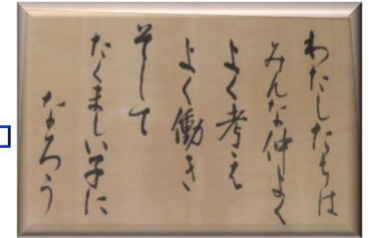 わたしたちは
みんな仲よく
よく考え
よく働き
そして
たくましい子に
なろう